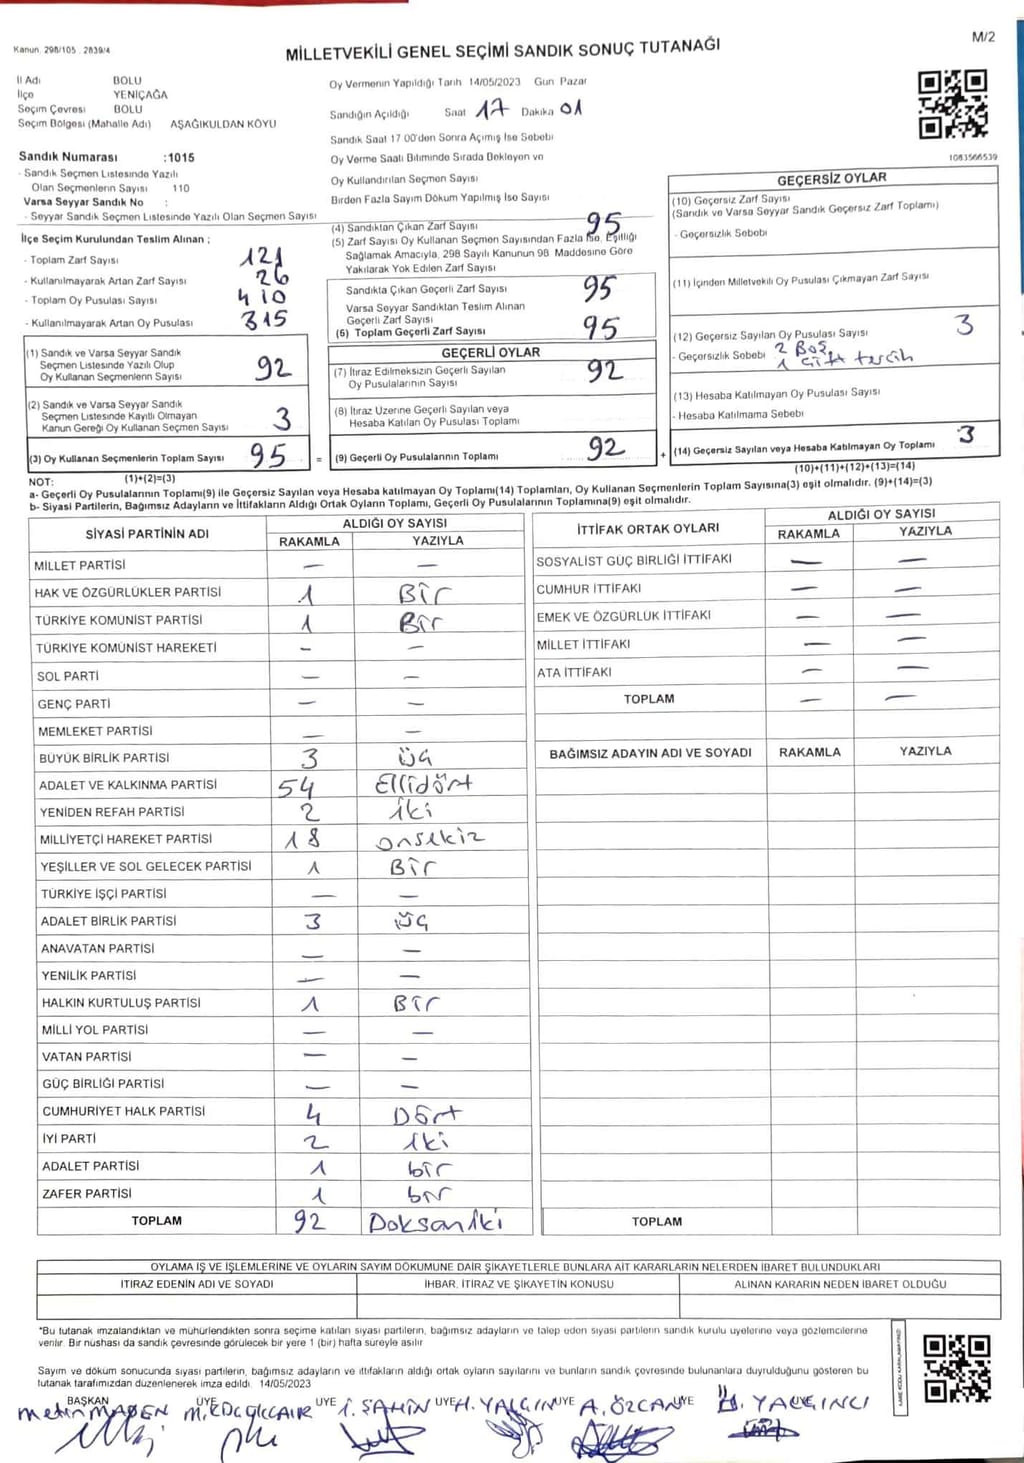 Kanun. 298/105 . 2839/4
MİLLETVEKİLİ GENEL SEÇİMİ SANDIK SONUÇ TUTANAĞI
M/2
İl Adı BOLU
İlçe YENİÇAĞA
Seçim Çevresi BOLU
Seçim Bölgesi (Mahalle Adı) AŞAĞIKULDAN KÖYÜ
Sandık Numarası :1015
- Sandık Seçmen Listesinde Yazılı
Olan Seçmenlerin Sayısı 110
Varsa Seyyar Sandık No :
- Seyyar Sandık Seçmen Listesinde Yazılı Olan Seçmen Sayısı
Oy Vermenin Yapıldığı Tarih 14/05/2023 Gün Pazar
Sandığın Açıldığı Saat 17 Dakika 01
Sandık Saat 17 00'den Sonra Açımış İse Sebebi
Oy Verme Saati Bitiminde Sırada Bekleyen ve
Oy Kullandırılan Seçmen Sayısı
Birden Fazla Sayım Döküm Yapılmış İse Sayısı
1083566539
İlçe Seçim Kurulundan Teslim Alınan ;
- Toplam Zarf Sayısı 121
- Kullanılmayarak Artan Zarf Sayısı 26
- Toplam Oy Pusulası Sayısı 410
- Kullanılmayarak Artan Oy Pusulası 315
(1) Sandık ve Varsa Seyyar Sandık
Seçmen Listesinde Yazılı Olup
Oy Kullanan Seçmenlerin Sayısı 92
(2) Sandık ve Varsa Seyyar Sandık
Seçmen Listesinde Kayıtlı Olmayan
Kanun Gereği Oy Kullanan Seçmen Sayısı 3
(3) Oy Kullanan Seçmenlerin Toplam Sayısı 95 =
(1)+(2)=(3)
(4) Sandıktan Çıkan Zarf Sayısı 95
(5) Zarf Sayısı Oy Kullanan Seçmen Sayısından Fazla İse, Eşitliği
Sağlamak Amacıyla, 298 Sayılı Kanunun 98 Maddesine Göre
Yakılarak Yok Edilen Zarf Sayısı
Sandıkta Çıkan Geçerli Zarf Sayısı 95
Varsa Seyyar Sandıktan Teslim Alınan
Geçerli Zarf Sayısı
(6) Toplam Geçerli Zarf Sayısı 95
GEÇERLİ OYLAR
(7) İtiraz Edilmeksizin Geçerli Sayılan
Oy Pusulalarının Sayısı 92
(8) İtiraz Üzerine Geçerli Sayılan veya
Hesaba Katılan Oy Pusulası Toplamı
(9) Geçerli Oy Pusulalarının Toplamı 92 +
GEÇERSİZ OYLAR
(10) Geçersiz Zarf Sayısı
(Sandık ve Varsa Seyyar Sandık Geçersiz Zarf Toplamı)
- Geçersizlik Sebebi
(11) İçinden Milletvekili Oy Pusulası Çıkmayan Zarf Sayısı
(12) Geçersiz Sayılan Oy Pusulası Sayısı 3
- Geçersizlik Sebebi 2 Boş
1 çift tercih
(13) Hesaba Katılmayan Oy Pusulası Sayısı
- Hesaba Katılmama Sebebi
(14) Geçersiz Sayılan veya Hesaba Katılmayan Oy Toplamı 3
(10)+(11)+(12)+(13)=(14)
NOT:
a- Geçerli Oy Pusulalarının Toplamı(9) ile Geçersiz Sayılan veya Hesaba katılmayan Oy Toplamı(14) Toplamları, Oy Kullanan Seçmenlerin Toplam Sayısına(3) eşit olmalıdır. (9)+(14)=(3)
b- Siyasi Partilerin, Bağımsız Adayların ve İttifakların Aldığı Ortak Oyların Toplamı, Geçerli Oy Pusulalarının Toplamına(9) eşit olmalıdır.
SİYASİ PARTİNİN ADI ALDIĞI OY SAYISI
RAKAMLA YAZIYLA
MİLLET PARTİSİ — —
HAK VE ÖZGÜRLÜKLER PARTİSİ 1 Bir
TÜRKİYE KOMÜNİST PARTİSİ 1 Bir
TÜRKİYE KOMÜNİST HAREKETİ — —
SOL PARTİ — —
GENÇ PARTİ — —
MEMLEKET PARTİSİ — —
BÜYÜK BİRLİK PARTİSİ 3 üç
ADALET VE KALKINMA PARTİSİ 54 Ellidört
YENİDEN REFAH PARTİSİ 2 iki
MİLLİYETÇİ HAREKET PARTİSİ 18 onsekiz
YEŞİLLER VE SOL GELECEK PARTİSİ 1 Bir
TÜRKİYE İŞÇİ PARTİSİ — —
ADALET BİRLİK PARTİSİ 3 üç
ANAVATAN PARTİSİ — —
YENİLİK PARTİSİ — —
HALKIN KURTULUŞ PARTİSİ 1 Bir
MİLLİ YOL PARTİSİ — —
VATAN PARTİSİ — —
GÜÇ BİRLİĞİ PARTİSİ — —
CUMHURİYET HALK PARTİSİ 4 Dört
İYİ PARTİ 2 iki
ADALET PARTİSİ 1 bir
ZAFER PARTİSİ 1 bir
TOPLAM 92 Doksaniki
İTTİFAK ORTAK OYLARI ALDIĞI OY SAYISI
RAKAMLA YAZIYLA
SOSYALİST GÜÇ BİRLİĞİ İTTİFAKI — —
CUMHUR İTTİFAKI — —
EMEK VE ÖZGÜRLÜK İTTİFAKI — —
MİLLET İTTİFAKI — —
ATA İTTİFAKI — —
TOPLAM — —
BAĞIMSIZ ADAYIN ADI VE SOYADI RAKAMLA YAZIYLA
TOPLAM
OYLAMA İŞ VE İŞLEMLERİNE VE OYLARIN SAYIM DÖKÜMÜNE DAİR ŞİKAYETLERLE BUNLARA AİT KARARLARIN NELERDEN İBARET BULUNDUKLARI
İTİRAZ EDENİN ADI VE SOYADI İHBAR, İTİRAZ VE ŞİKAYETİN KONUSU ALINAN KARARIN NEDEN İBARET OLDUĞU
*Bu tutanak imzalandıktan ve mühürlendikten sonra seçime katılan siyasi partilerin, bağımsız adayların ve talep eden siyasi partilerin sandık kurulu üyelerine veya gözlemcilerine
verilir. Bir nüshası da sandık çevresinde görülecek bir yere 1 (bir) hafta süreyle asılır
Sayım ve döküm sonucunda siyasi partilerin, bağımsız adayların ve ittifakların aldığı ortak oyların sayılarını ve bunların sandık çevresinde bulunanlara duyrulduğunu gösteren bu
tutanak tarafımızdan düzenlenerek imza edildi. 14/05/2023
BAŞKAN ÜYE ÜYE ÜYE ÜYE ÜYE ÜYE
Metin MADEN İ. ŞAHİN H. YALÇIN A. ÖZCAN